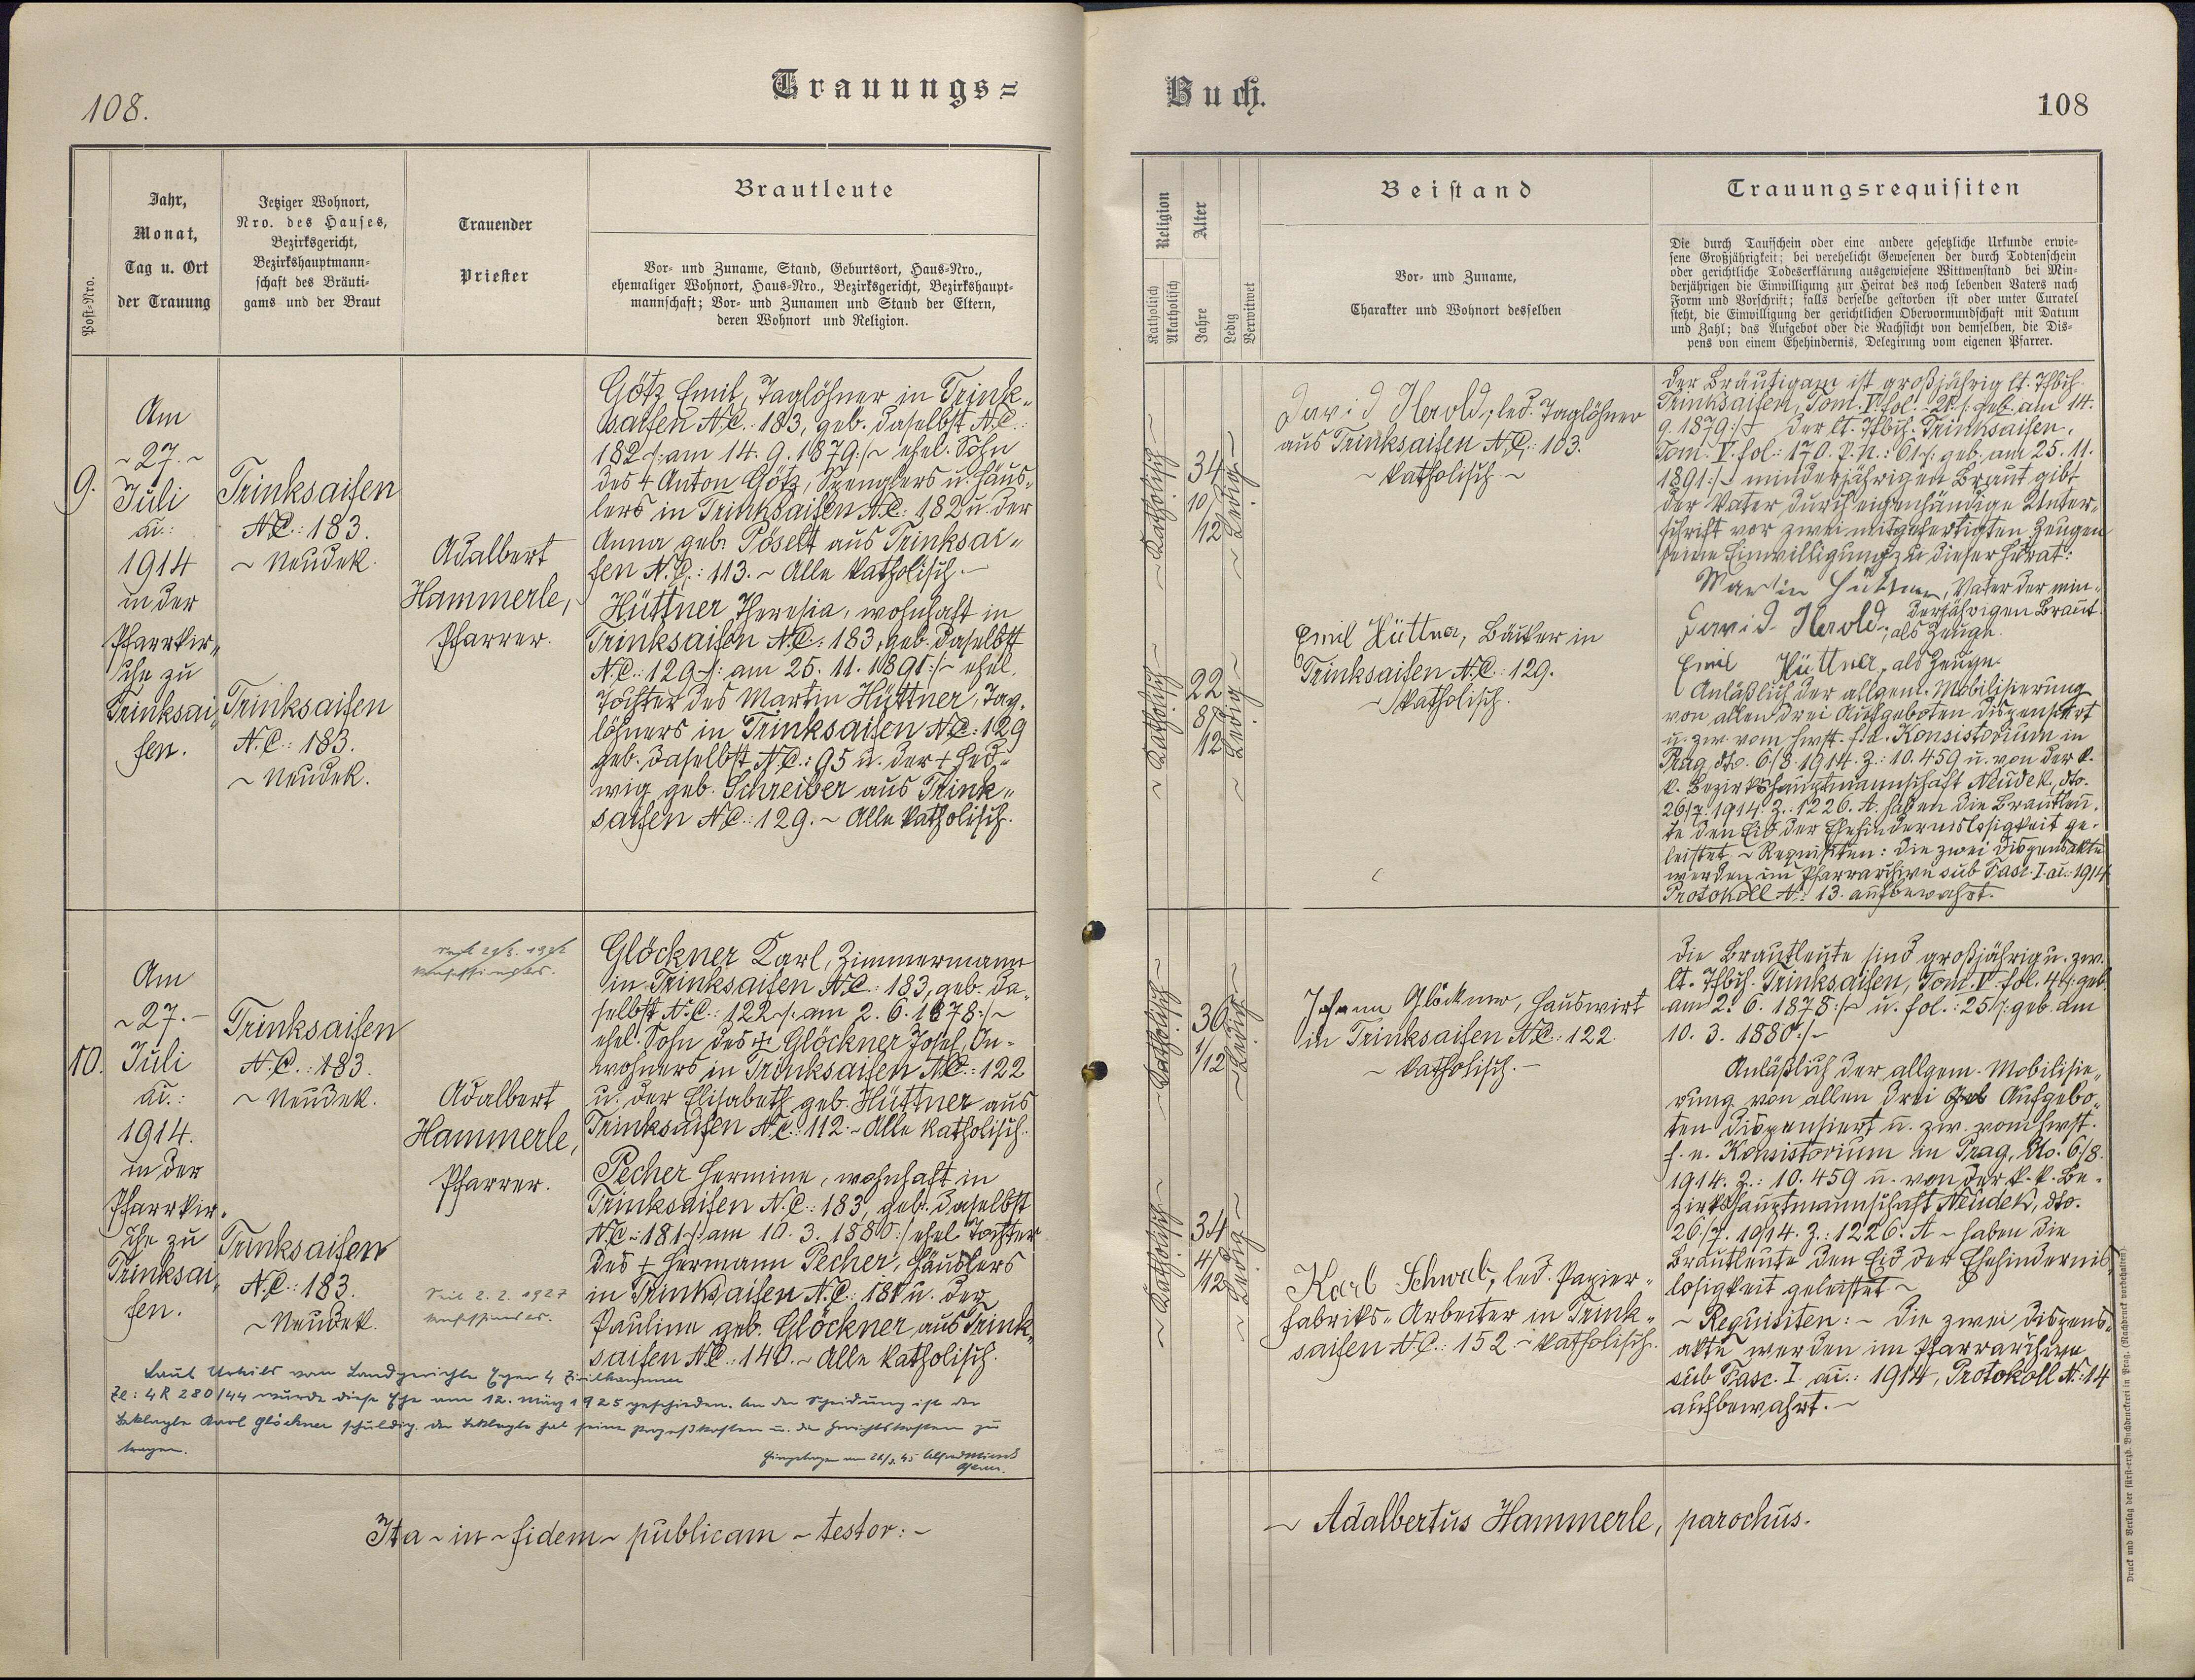 108.
Trauungs=
Post-Nro.
Jahr,
Monat,
Tag u. Ort
der Trauung
Jetziger Wohnort,
Nro. des Hauses,
Bezirksgericht,
Bezirkshauptmann-
schaft des Bräuti-
gams und der Braut
Trauender
Priester
Brautleute
Vor- und Zuname, Stand, Geburtsort, Haus-Nro.,
ehemaliger Wohnort, Haus-Nro., Bezirksgericht, Bezirkshaupt-
mannschaft; Vor- und Zunamen und Stand der Eltern,
deren Wohnort und Religion.
9.
Am
~27.~
Juli
ai.:
1914
in der
Pfarrkir„
che zu
Trinksai„
fen.
Trinksaifen
N.C.: 183.
~ Neudek.
Trinksaifen
N.C.: 183.
~ Neudek.
Adalbert
Hammerle,
Pfarrer.
Götz Emil, Taglöhner in Trink„
saifen N.C.: 183, geb. daselbst N.C.:
182 /: am 14. 9. 1879 :/~ ehel. Sohn
des + Anton Götz, Spenglers u. Häus„
lers in Trinksaifen N.C.: 182 u. der
Anna geb. Pöselt aus Trinksai„
fen N.C.: 113. ~ Alle katholisch. —
Hüttner Theresia, wohnhaft in
Trinksaifen N.C.: 183, geb. daselbst
N.C.: 129 /: am 25. 11. 1891 :/~ ehel.
Tochter des Martin Hüttner, Tag„
löhners in Trinksaifen N.C.: 129
geb. daselbst N.C.: 95 u. der + Hed„
wig geb. Schreiber aus Trink„
saifen N.C.: 129. ~ Alle katholisch.
10.
Am
~27.—
Juli
ai.:
1914.
in der
Pfarrkir„
che zu
Trinksai„
fen.
Trinksaifen
N.C.: 183.
~ Neudek.
Trinksaifen
N.C.: 183.
~ Neudek.
konfessionslos.
Adalbert
Hammerle,
Pfarrer.
Seit 2. 2. 1927
konfessionslos.
Glöckner Karl, Zimmermann
in Trinksaifen N.C.: 183, geb. da„
selbst N.C.: 122 /: am 2. 6. 1878 :/~
ehel. Sohn des + Glöckner Josef, In-
wohners in Trinksaifen N.C.: 122
u. der Elisabeth geb. Hüttner aus
Trinksaifen N.C.: 112. ~ Alle katholisch.
Pecher Hermine, wohnhaft in
Trinksaifen N.C.: 183, geb. daselbst
N.C.: 181 /: am 10. 3. 1880 :/ ehel. Tochter
des + Hermann Pecher, Häuslers
in Trinksaifen N.C.: 181 u. der
Pauline geb. Glöckner aus Trink„
saifen N.C.: 140. ~ Alle katholisch.
Laut Urteils vom Landgerichte Eger 4 Zivilkammer
Zl: 4 R 280/44 wurde diese Ehe am 12. März 1925 geschieden. An der Scheidung ist der
Beklagte Karl Glöckner schuldig. Der Beklagte hat seine Prozeßkosten u. die Gerichtskosten zu
tragen.
Eingetragen am
Ita ~ in ~ fidem ~ publicam ~ testor: ~
Buch.
108
Religion
Katholisch
Akatholisch
Alter
Jahre
Ledig
Verwitwet
Beistand
Vor- und Zuname,
Charakter und Wohnort desselben
Trauungsrequisiten
Die durch Taufschein oder eine andere gesetzliche Urkunde erwie-
sene Großjährigkeit; bei verehelicht Gewesenen der durch Todtenschein
oder gerichtliche Todeserklärung ausgewiesene Wittwenstand bei Min-
derjährigen die Einwilligung zur Heirat des noch lebenden Vaters nach
Form und Vorschrift; falls derselbe gestorben ist oder unter Curatel
steht, die Einwilligung der gerichtlichen Obervormundschaft mit Datum
und Zahl; das Aufgebot oder die Nachsicht von demselben, die Dis-
pens von einem Ehehindernis, Delegirung vom eigenen Pfarrer.
~ Katholisch ~
34
10/
12
~ Ledig ~
~ Katholisch ~
22
8/
12
~ Ledig ~
David Herold, led. Taglöhner
aus Trinksaifen N.C.: 103.
~ Katholisch ~
Emil Hüttner, Bäcker in
Trinksaifen N.C.: 129.
~ Katholisch.
Der Bräutigam ist großjährig lt. Tfbch.
Trinksaifen, Tom. V. fol. 21 /: geb. am 14.
9. 1879 :/ Der lt. Tfbch. Trinksaifen,
Tom. V. fol.: 170. P.N.: 61 /: geb. am 25. 11.
1891 :/~ minderjährigen Braut gibt
der Vater durch eigenhändige Unter„
schrift vor zwei mitgefertigten Zeugen
seine Einwilligung zu dieser Heirat:
Martin Hüttner, Vater der min„
derjährigen Braut.
David Herold, als Zeuge.
Emil Hüttner, als Zeuge.
Anläßlich der allgem. Mobilisierung
von allen drei Aufgeboten dispensiert
u. zw. vom hwst. f. e. Konsistorium in
Prag, dto. 6/8. 1914. Z.: 10.459 u. von der k.
k. Bezirkshauptmannschaft Neudek, dto.
26/7. 1914. Z.: 1226. A. haben die Brautleu„
te den Eid der Ehehindernislosigkeit ge„
leistet. ~ Requisiten: Die zwei Dispensakte
werden im Pfarrarchive sub Fasc. I. ai.: 1914
Protokoll N.: 13. aufbewahrt.
~ Katholisch ~
36
1/
12
~ Ledig ~
~ Katholisch ~
34
4/
12
~ Ledig ~
Johann Glöckner, Hauswirt
in Trinksaifen N.C.: 122.
~ Katholisch. —
Karl Schwab, led. Papier„
fabriks„Arbeiter in Trink„
saifen N.C.: 152 ~ Katholisch.
Die Brautleute sind großjährig u. zw.
lt. Tfbch. Trinksaifen, Tom. V. fol. 4 /: geb.
am 2. 6. 1878 :/~ u. fol.: 25 /: geb. am
10. 3. 1880 :/~
Anläßlich der allgem. Mobilisie„
rung von allen drei Aufgebo„
ten dispensiert u. zw. vom hwst.
f. e. Konsistorium in Prag, dto. 6/8.
1914. Z.: 10.459 u. von der k. k. Be„
zirkshauptmannschaft Neudek, dto.
26/7. 1914. Z.: 1226. A ~ haben die
Brautleute den Eid der Ehehindernis„
losigkeit geleistet ~
~ Requisiten: ~ Die zwei Dispens„
akte werden im Pfarrarchive
sub Fasc. I. ai.: 1914, Protokoll N.: 14
aufbewahrt. ~
~ Adalbertus Hammerle, parochus.
Druck und Verlag der fürst-erzb. Buchdruckerei in Prag. (Nachdruck vorbehalten)